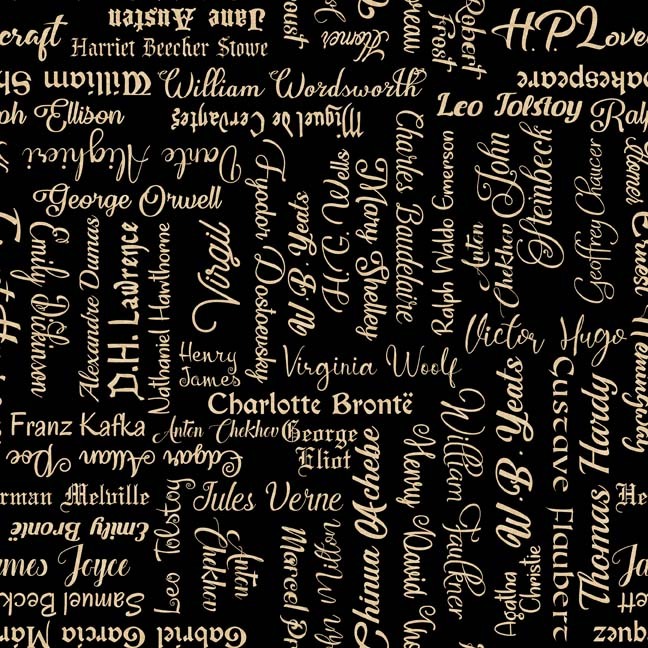 craft
Jane Austen
Harriet Beecher Stowe
Homer
Robert
Frost
H.P. Love
William Sh
William Wordsworth
akespeare
ph Ellison
Miguel de Cervantes
Leo Tolstoy
Ralp
Dante Alighieri
George Orwell
Emily Dickinson
Alexandre Dumas
D.H. Lawrence
Nathaniel Hawthorne
Virgil
Fyodor Dostoevsky
W. B. Yeats
H. G. Wells
Mary Shelley
Charles Baudelaire
Ralph Waldo Emerson
Anton
Chekhov
John
Steinbeck
Geoffrey Chaucer
Homer
Ernest Hemingway
Henry
James
Virginia Woolf
Victor Hugo
Charlotte Brontë
Franz Kafka
Anton Chekhov
George
Eliot
Edgar Allan Poe
rman Melville
Jules Verne
Emily Brontë
ames Joyce
Samuel Beck
Gabriel Garcia Már
Leo Tolstoy
Anton
Chekhov
Marcel Pr
hn Milton
Chinua Achebe
Henry David Tho
William Faulkner
W. B. Yeats
Agatha
Christie
Gustave Flaubert
Thomas Hardy
He
Ja
ett
quez